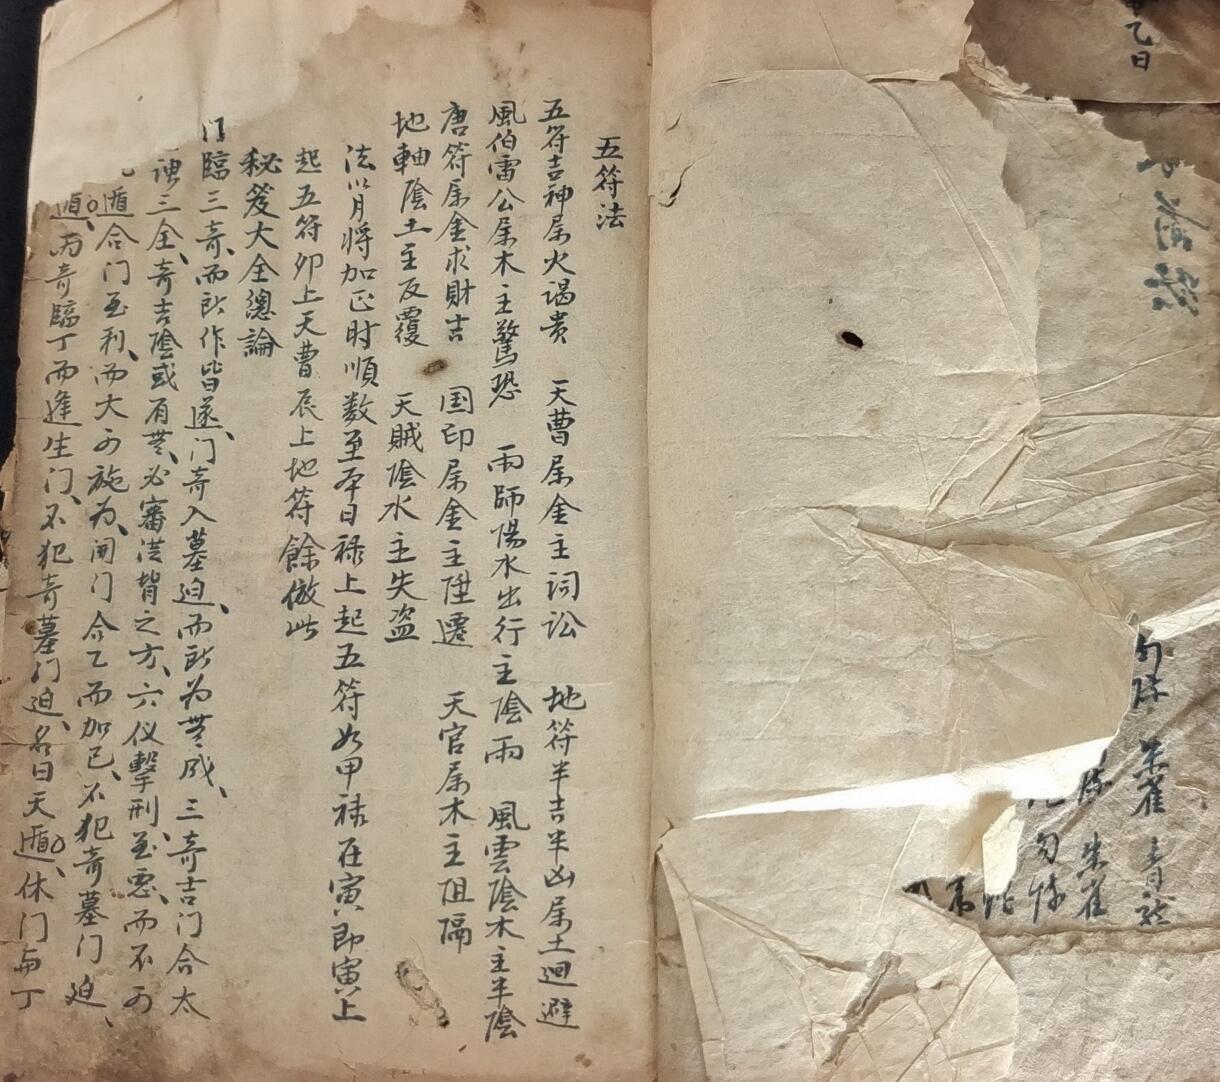 乙日
勾陈 朱雀 青龙
朱雀
勾陈
五符法
五符吉神屬火谒贵 天曹屬金主詞訟 地符半吉半凶屬土迴避
風伯雷公屬木主驚恐 雨師陽水出行主陰雨 風雲陰木主半陰
唐符屬金求財吉 国印屬金主陞遷 天官屬木主阻隔
地軸陰土主反覆 天賊陰水主失盜
法以月将加正时順数至本日禄上起五符如甲禄在寅即寅上
起五符卯上天曹辰上地符餘倣此
秘笈大全總論
门臨三奇、而所作皆遂、门奇入墓迫、而所为無成、三奇吉门合太
三全、奇吉陰或有無、必審渋背之方、六仪擊刑至悪、而不可
遁合门至利、而大可施为、闹门合乙而加己、不犯奇墓门迫、
遁、丙奇臨丁而逢生门、不犯奇墓门迫、名曰天遁、休门与丁